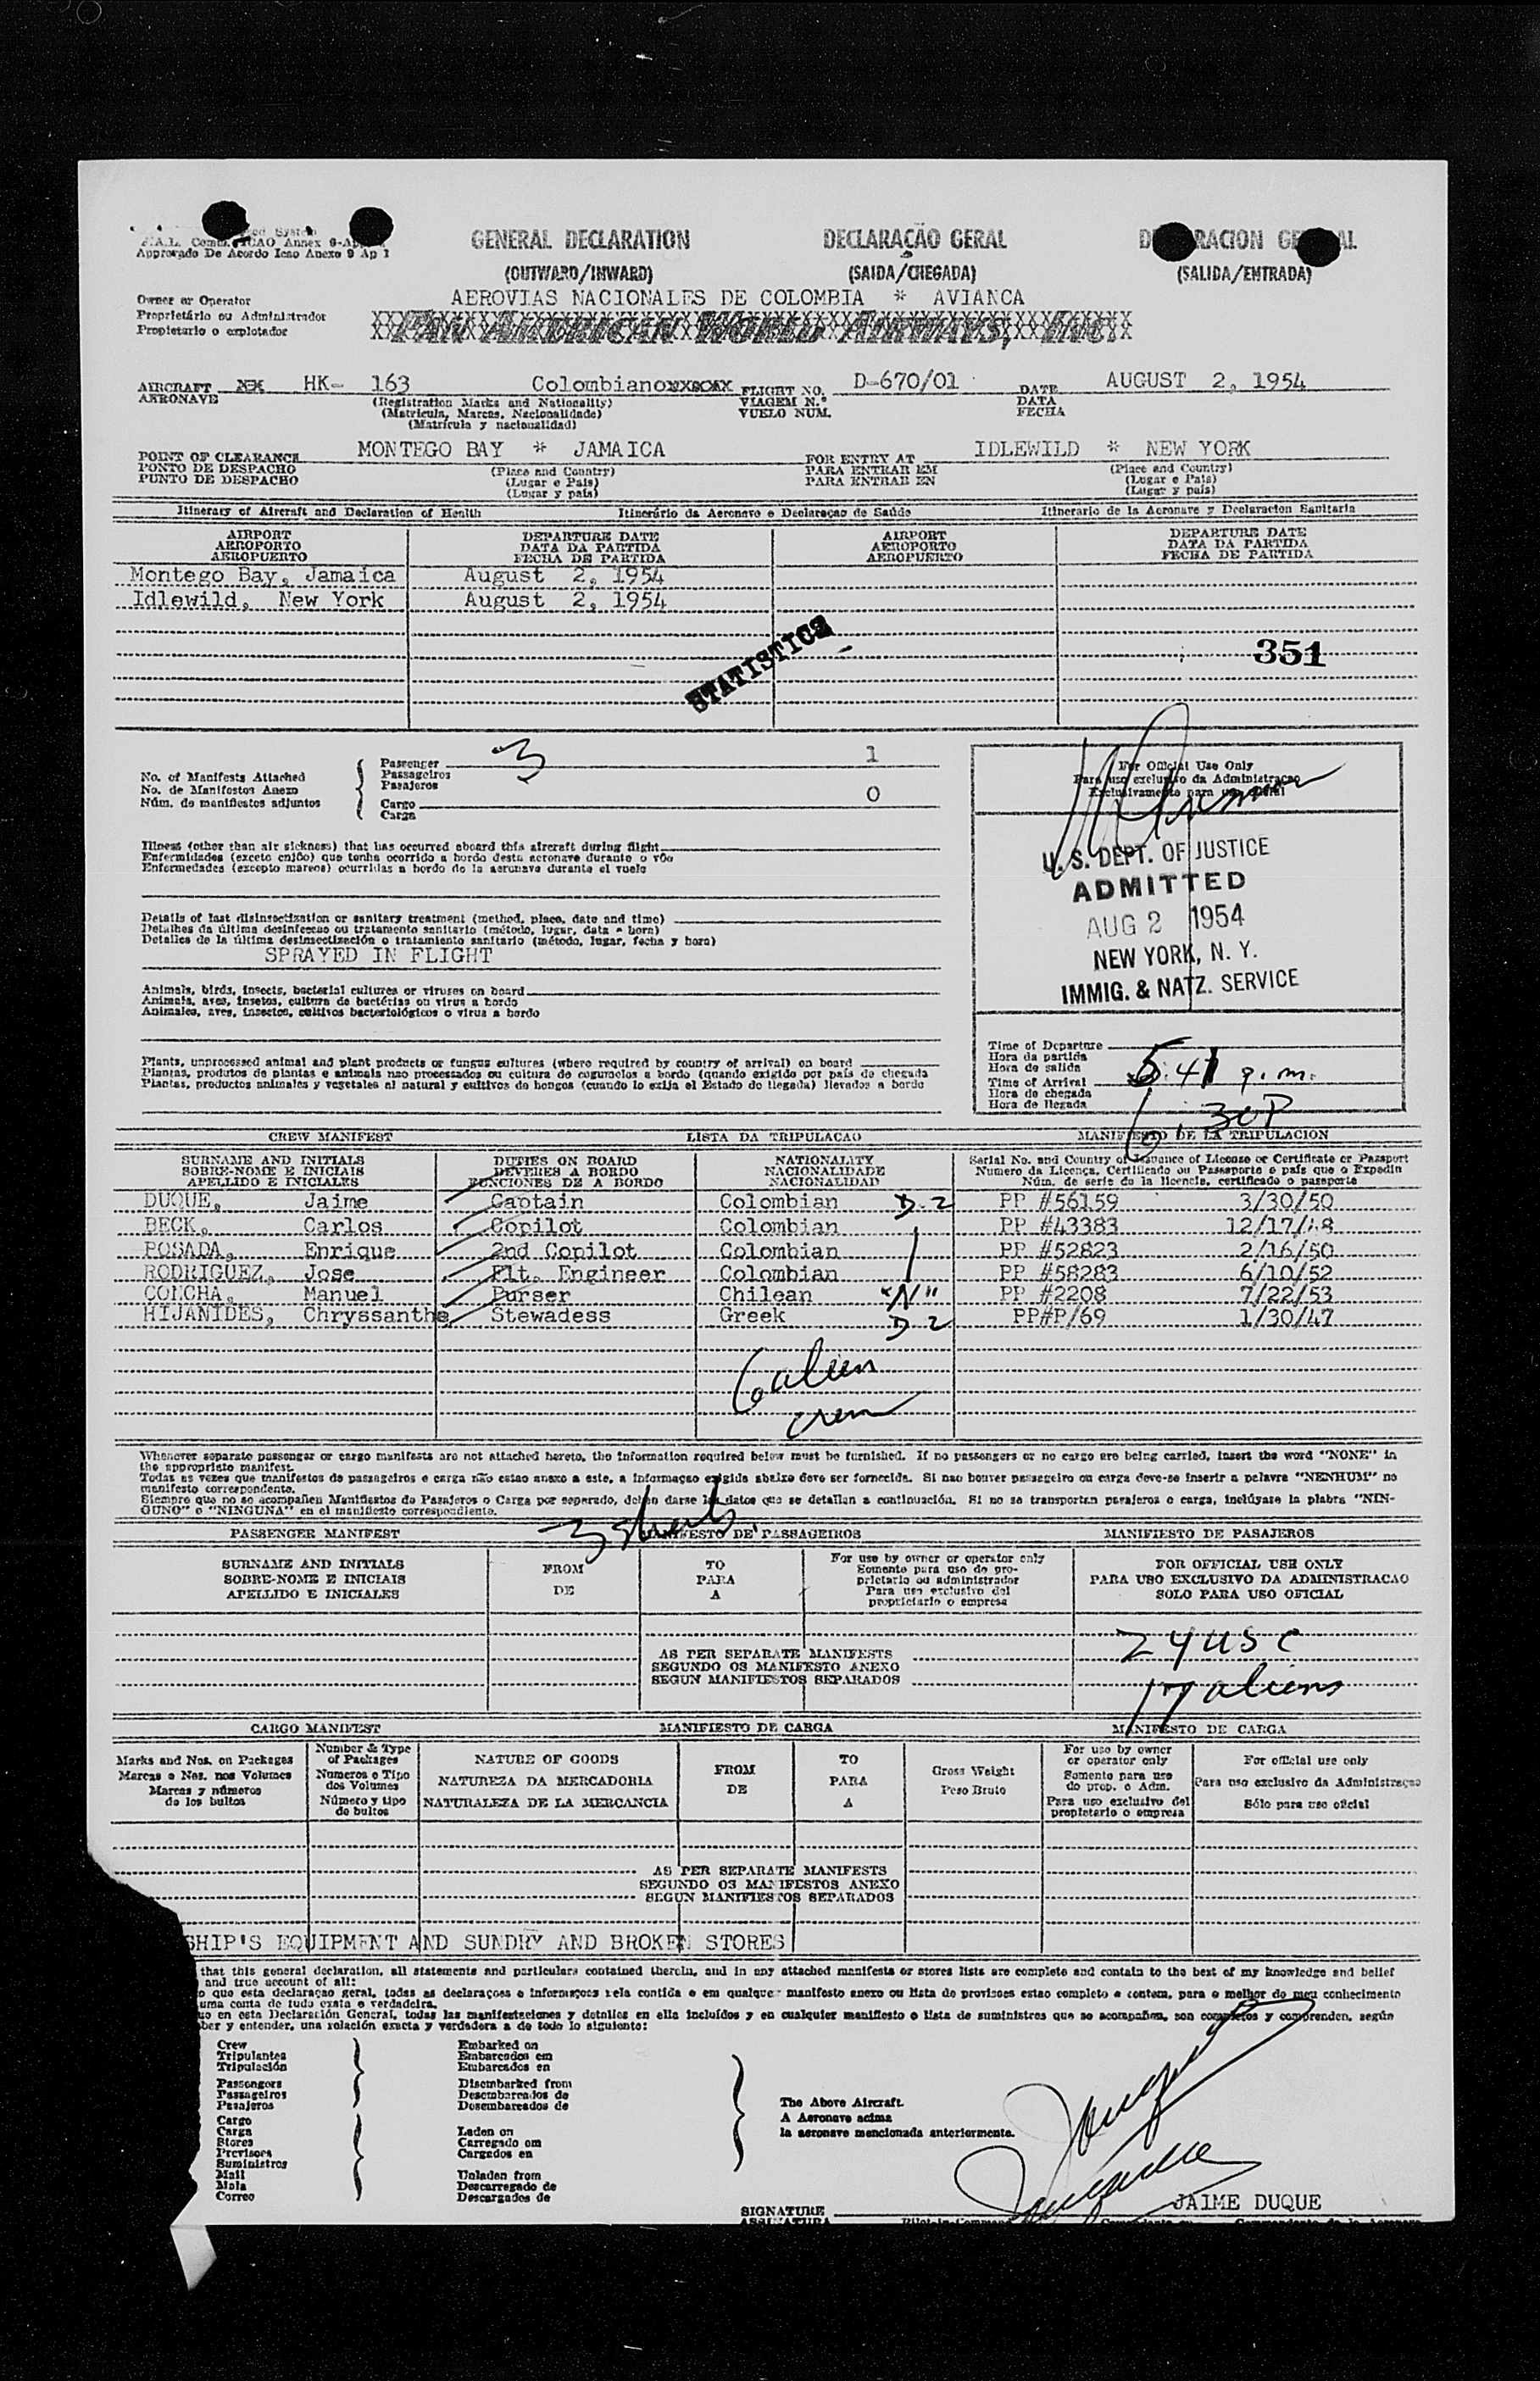 F.A.L. Comm. ICAO Annex 9-Ap
Approvado De Acordo Icao Anexo 9 Ap 1
GENERAL DECLARATION DECLARAÇÃO GERAL
(OUTWARD/INWARD) (SAIDA/CHEGADA) (SALIDA/ENTRADA)
Owner or Operator
Proprietário ou Administrador
Propietario o explotador
AEROVIAS NACIONALES DE COLOMBIA * AVIANCA
PAN AMERICAN WORLD AIRWAYS, INC.
AIRCRAFT HK- 163 Colombiano FLIGHT NO. D-670/01 DATE AUGUST 2, 1954
AERONAVE (Registration Marks and Nationality) VIAGEM N.º DATA
(Matricula, Marcas, Nacionalidade) VUELO NUM. FECHA
(Matricula y nacionalidad)
POINT OF CLEARANCE MONTEGO BAY * JAMAICA FOR ENTRY AT IDLEWILD * NEW YORK
PONTO DE DESPACHO (Place and Country) PARA ENTRAR EM (Place and Country)
PUNTO DE DESPACHO (Lugar e Pais) PARA ENTRAR EN (Lugar e Pais)
(Lugar y pais) (Lugar y pais)
Itinerary of Aircraft and Declaration of Health Itinerário da Aeronave e Declaraçao de Saúde Itinerario de la Aeronave y Declaracion Sanitaria
AIRPORT DEPARTURE DATE AIRPORT DEPARTURE DATE
AEROPORTO DATA DA PARTIDA AEROPORTO DATA DA PARTIDA
AEROPUERTO FECHA DE PARTIDA AEROPUERTO FECHA DE PARTIDA
Montego Bay, Jamaica August 2, 1954
Idlewild, New York August 2, 1954
STATISTICS
351
No. of Manifests Attached
No. de Manifestos Anexo
Núm. de manifiestos adjuntos
Passenger 3 1
Passageiros
Pasajeros
Cargo 0
Carga
For Official Use Only
Para uso exclusivo da Administraçao
Exclusivamente para uso oficial
U. S. DEPT. OF JUSTICE
ADMITTED
AUG 2 1954
NEW YORK, N. Y.
IMMIG. & NATZ. SERVICE
Illness (other than air sickness) that has occurred aboard this aircraft during flight
Enfermidades (exceto enjôo) que tenha ocorrido a bordo desta aeronave durante o vôo
Enfermedades (excepto mareos) ocurridas a bordo de la aeronave durante el vuelo
Details of last disinsectization or sanitary treatment (method, place, date and time)
Detalhes da última desinfeccao ou tratamento sanitario (método, lugar, data e hora)
Detalles de la última desinsectización o tratamiento sanitario (método, lugar, fecha y hora)
SPRAYED IN FLIGHT
Animals, birds, insects, bacterial cultures or viruses on board
Animais, aves, insetos, cultura de bactérias ou virus a bordo
Animales, aves, insectos, cultivos bacteriológicos o virus a bordo
Plants, unprocessed animal and plant products or fungus cultures (where required by country of arrival) on board
Plantas, produtos de plantas e animais nao processados ou cultura de cogumelos a bordo (quando exigido por país de chegada
Plantas, productos animales y vegetales al natural y cultivos de hongos (cuando lo exija el Estado de llegada) llevados a bordo
Time of Departure
Hora da partida
Hora de salida
5:41 p.m.
Time of Arrival
Hora de chegada
Hora de llegada
6:30P
CREW MANIFEST LISTA DA TRIPULACAO MANIFIESTO DE LA TRIPULACION
SURNAME AND INITIALS DUTIES ON BOARD NATIONALITY Serial No. and Country of Issuance of License or Certificate or Passport
SOBRE-NOME E INICIAIS DEVERES A BORDO NACIONALIDADE Numero da Licença, Certificado ou Passaporte o país que o Expediu
APELLIDO E INICIALES FUNCIONES DE A BORDO NACIONALIDAD Núm. de serie de la licencia, certificado o pasaporte
DUQUE, Jaime Captain Colombian D-2 PP #56159 3/30/50
BECK, Carlos Copilot Colombian PP #43383 12/17/48
POSADA, Enrique 2nd Copilot Colombian PP #52823 2/16/50
RODRIGUEZ, Jose Flt. Engineer Colombian PP #58283 6/10/52
CONCHA, Manuel Purser Chilean "N" PP #2208 7/22/53
HIJANIDES, Chryssanthe Stewadess Greek D-2 PP#P/69 1/30/47
6 alien
crew
Whenever separate passenger or cargo manifests are not attached hereto, the information required below must be furnished. If no passengers or no cargo are being carried, insert the word "NONE" in
the appropriate manifest.
Todas as vezes que manifestos de passageiros e carga não estao anexo a este, a informaçao exigida abaixo deve ser fornecida. Si nao houver passageiro ou carga deve-se inserir a pelavra "NENHUM" no
manifesto correspondente.
Siempre que no se acompañen Manifiestos de Pasajeros o Carga por separado, deben darse los datos que se detallan a continuación. Si no se transportan pasajeros o carga, inclúyase la plabra "NIN-
GUNO" o "NINGUNA" en el manifiesto correspondiente.
3 sheets
PASSENGER MANIFEST MANIFESTO DE PASSAGEIROS MANIFIESTO DE PASAJEROS
SURNAME AND INITIALS FROM TO For use by owner or operator only FOR OFFICIAL USE ONLY
SOBRE-NOME E INICIAIS DE PARA Somente para uso do pro- PARA USO EXCLUSIVO DA ADMINISTRACAO
APELLIDO E INICIALES A prietario ou administrador SOLO PARA USO OFICIAL
Para uso exclusivo del
propietario o empresa
AS PER SEPARATE MANIFESTS
SEGUNDO OS MANIFESTO ANEXO
SEGUN MANIFIESTOS SEPARADOS
24 USC
17 aliens
CARGO MANIFEST MANIFIESTO DE CARGA MANIFESTO DE CARGA
Marks and Nos. on Packages Number & Type of Packages NATURE OF GOODS FROM TO Gross Weight For use by owner or operator only For official use only
Marcas e Nos. nos Volumes Numeros e Tipo dos Volumes NATUREZA DA MERCADORIA DE PARA Peso Bruto Somento para use do prop. o Adm. Para uso exclusivo da Administraçao
Marcas y números de los bultos Número y tipo de bultos NATURALEZA DE LA MERCANCIA A Para uso exclusivo del propietario o empresa Sólo para uso oficial
AS PER SEPARATE MANIFESTS
SEGUNDO OS MANIFESTOS ANEXO
SEGUN MANIFIESTOS SEPARADOS
SHIP'S EQUIPMENT AND SUNDRY AND BROKEN STORES
that this general declaration, all statements and particulars contained therein, and in any attached manifests or stores lists are complete and contain to the best of my knowledge and belief
and true account of all:
o que esta declaraçao geral, todas as declaraçoes e informaçoes nela contida e em qualquer manifesto anexo ou lista de provisoes estao completo e contem, para o melhor do meu conhecimento
uma conta de tudo exata e verdadeira.
en esta Declaración General, todas las manifestaciones y detalles en ella incluídos y en cualquier manifiesto o lista de suministros que se acompañan, son completos y comprenden, según
ber y entender, una relación exacta y verdadera a de todo lo siguiente:
Crew Embarked on
Tripulantes Embarcados em
Tripulación Embarcados en
Passengers Disembarked from
Passageiros Desembarcados de
Pasajeros Desembarcados de
Cargo
Carga Laden on
Stores Carregado em
Previsoes Cargados en
Suministros
Mail Unladen from
Mala Descarregado de
Correo Descargados de
The Above Aircraft.
A Aeronave acima
la aeronave mencionada anteriormente.
JAIME DUQUE
SIGNATURE
ASSINATURA